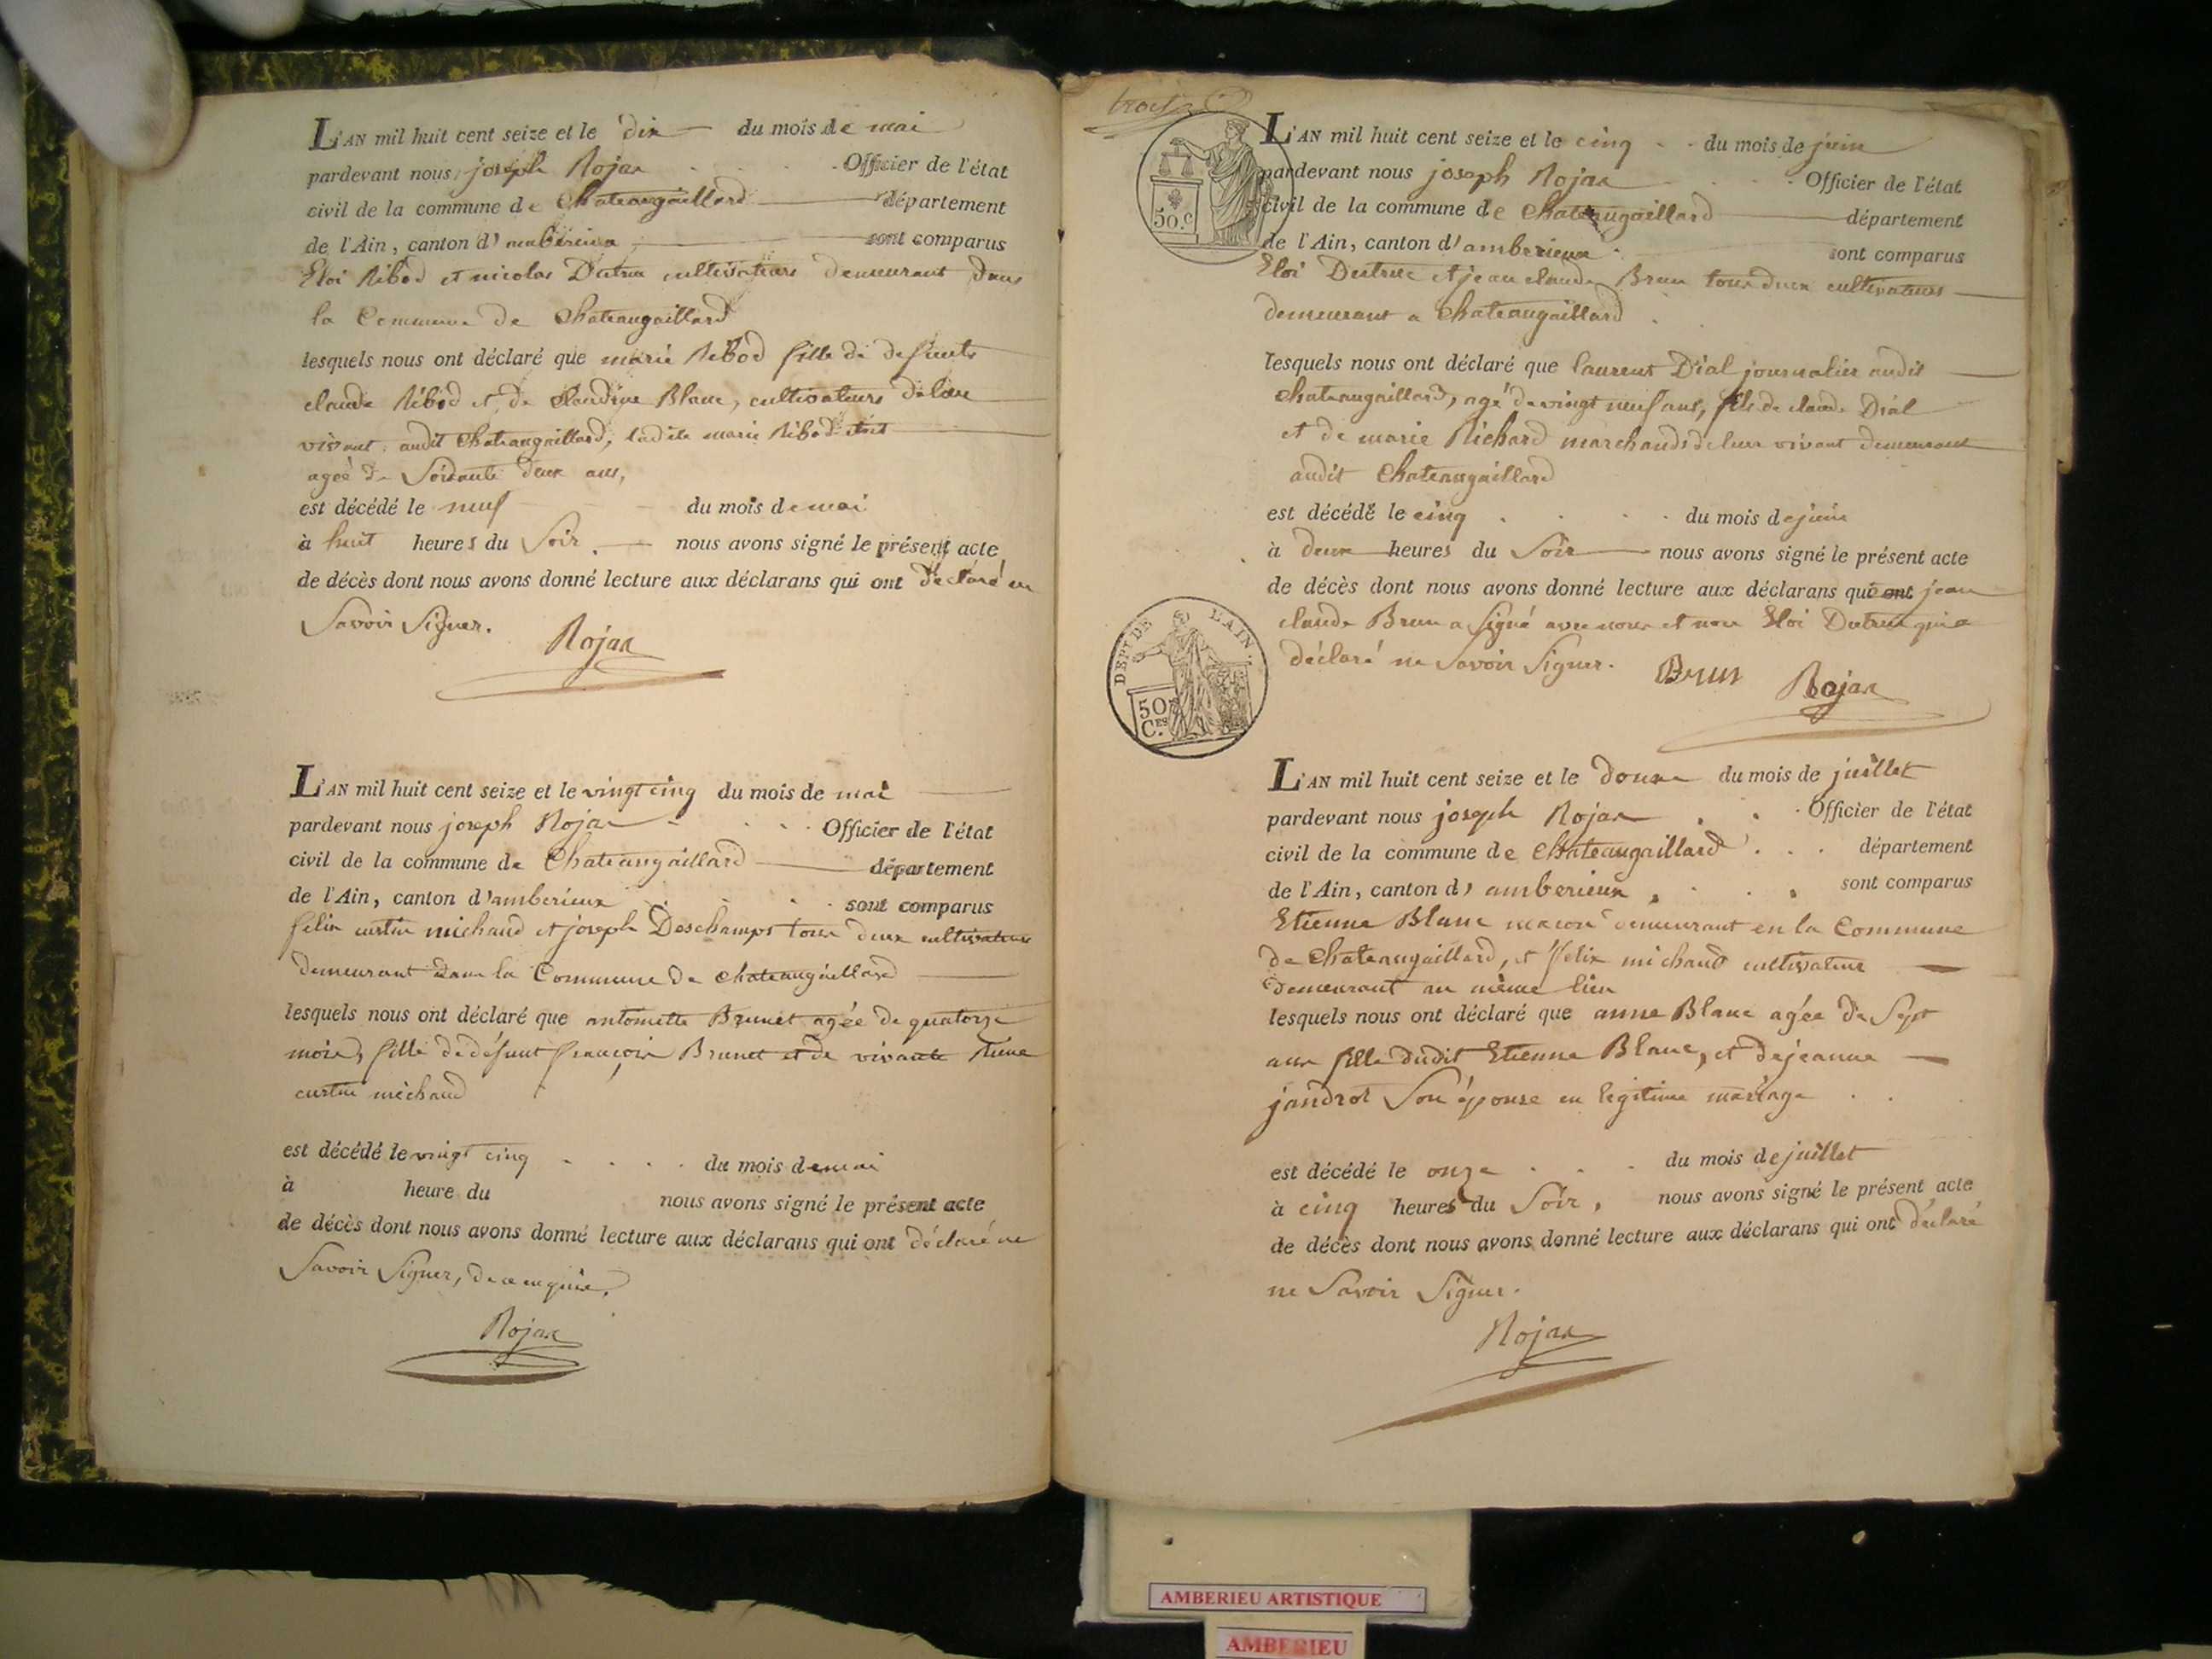 L'AN mil huit cent seize et le dix du mois de mai
pardevant nous joseph Rojat Officier de l'état
civil de la commune de Chateaugaillard département
de l'Ain, canton d'amberieux sont comparus
Eloi Ribod et nicolas Dutruc cultivateurs demeurant dans
la Commune de Chateaugaillard
lesquels nous ont déclaré que marie Ribod fille de defunts
claude Ribod et de Claudine Blanc, cultivateurs de leur
vivant audit Chateaugaillard, ladite marie Ribod etoit
agée de Soixante deux ans,
est décédé le neuf du mois de mai
à huit heures du Soir. nous avons signé le présent acte
de décès dont nous avons donné lecture aux déclarans qui ont déclaré ne
Savoir Signer.
Rojat
L'AN mil huit cent seize et le vingt cinq du mois de mai
pardevant nous joseph Rojat Officier de l'état
civil de la commune de Chateaugaillard département
de l'Ain, canton d'amberieux sont comparus
felix curtin michaud et joseph Deschamps tous deux cultivateurs
demeurant dans la Commune de chateaugaillard
lesquels nous ont déclaré que antoinette Brunet agée de quatorze
mois, fille de défunt françois Brunet et de vivante
curtin michaud
est décédé le vingt cinq du mois de mai
à heure du nous avons signé le présent acte
de décès dont nous avons donné lecture aux déclarans qui ont déclaré ne
Savoir Signer, de ce enquis.
Rojat
trois
50.c
L'AN mil huit cent seize et le cinq du mois de juin
pardevant nous joseph Rojat Officier de l'état
civil de la commune de Chateaugaillard département
de l'Ain, canton d'amberieux sont comparus
Eloi Dutruc et jean claude Brun tous deux cultivateurs
demeurant a Chateaugaillard
lesquels nous ont déclaré que laurent Dial journalier audit
Chateaugaillard, agé de vingt neuf ans, fils de claude Dial
et de marie Richard marchands de leur vivant demeurant
audit Chateaugaillard
est décédé le cinq du mois de juin
à deux heures du Soir nous avons signé le présent acte
de décès dont nous avons donné lecture aux déclarans qui ont jean
claude Brun a Signé avec nous et non Eloi Dutruc qui a
déclaré ne Savoir Signer.
Brun Rojat
DEPT. DE L'AIN
50 C.es
L'AN mil huit cent seize et le douze du mois de juillet
pardevant nous joseph Rojat Officier de l'état
civil de la commune de Chateaugaillard département
de l'Ain, canton d'amberieux sont comparus
Etienne Blanc macon demeurant en la Commune
de Chateaugaillard, et felix michaud cultivateur
demeurant au même lieu
lesquels nous ont déclaré que anne Blanc agée de Sept
ans fille dudit Etienne Blanc, et de jeanne
jandrot Son épouse en legitime mariage
est décédé le onze du mois de juillet
à cinq heures du Soir, nous avons signé le présent acte
de décès dont nous avons donné lecture aux déclarans qui ont déclaré
ne Savoir Signer.
Rojat
AMBERIEU ARTISTIQUE
AMBERIEU